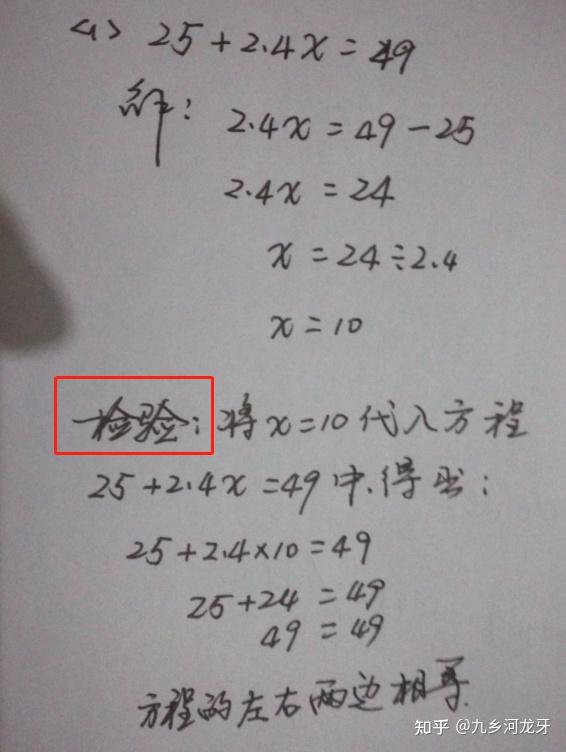 <1> 25+2.4x=49
解: 2.4x=49-25
2.4x=24
x=24÷2.4
x=10
检验: 将x=10代入方程
25+2.4x=49中.得出:
25+2.4×10=49
25+24=49
49=49
方程的左右两边相等
知乎 @九乡河龙牙